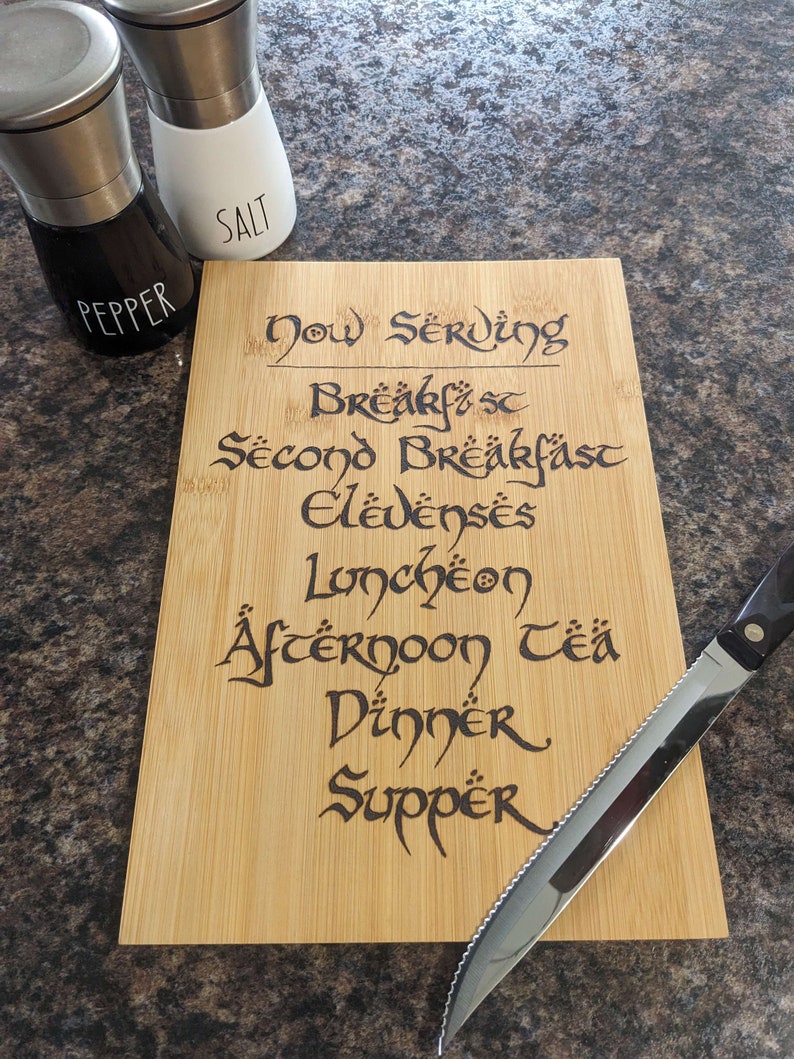 SALT
PEPPER
Now Serving
Breakfist
Second Breakfast
Elevenses
Luncheon
Afternoon Tea
Dinner
Supper